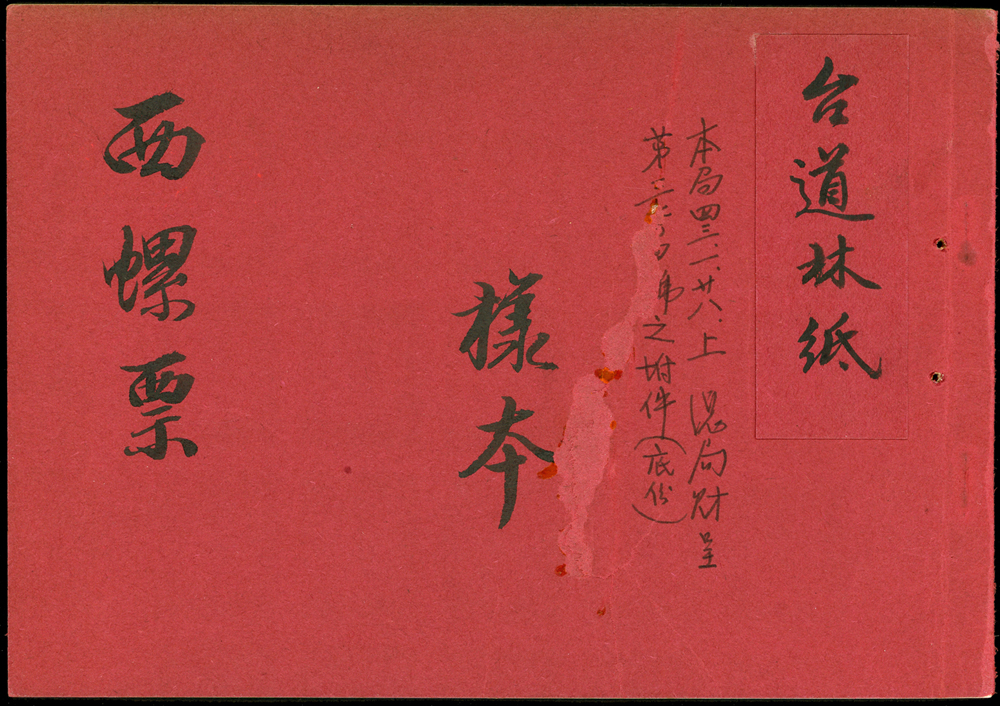 台道林紙
本局四三、一、廿八、上 局財呈
第 號之附件(底份)
樣本
西螺票